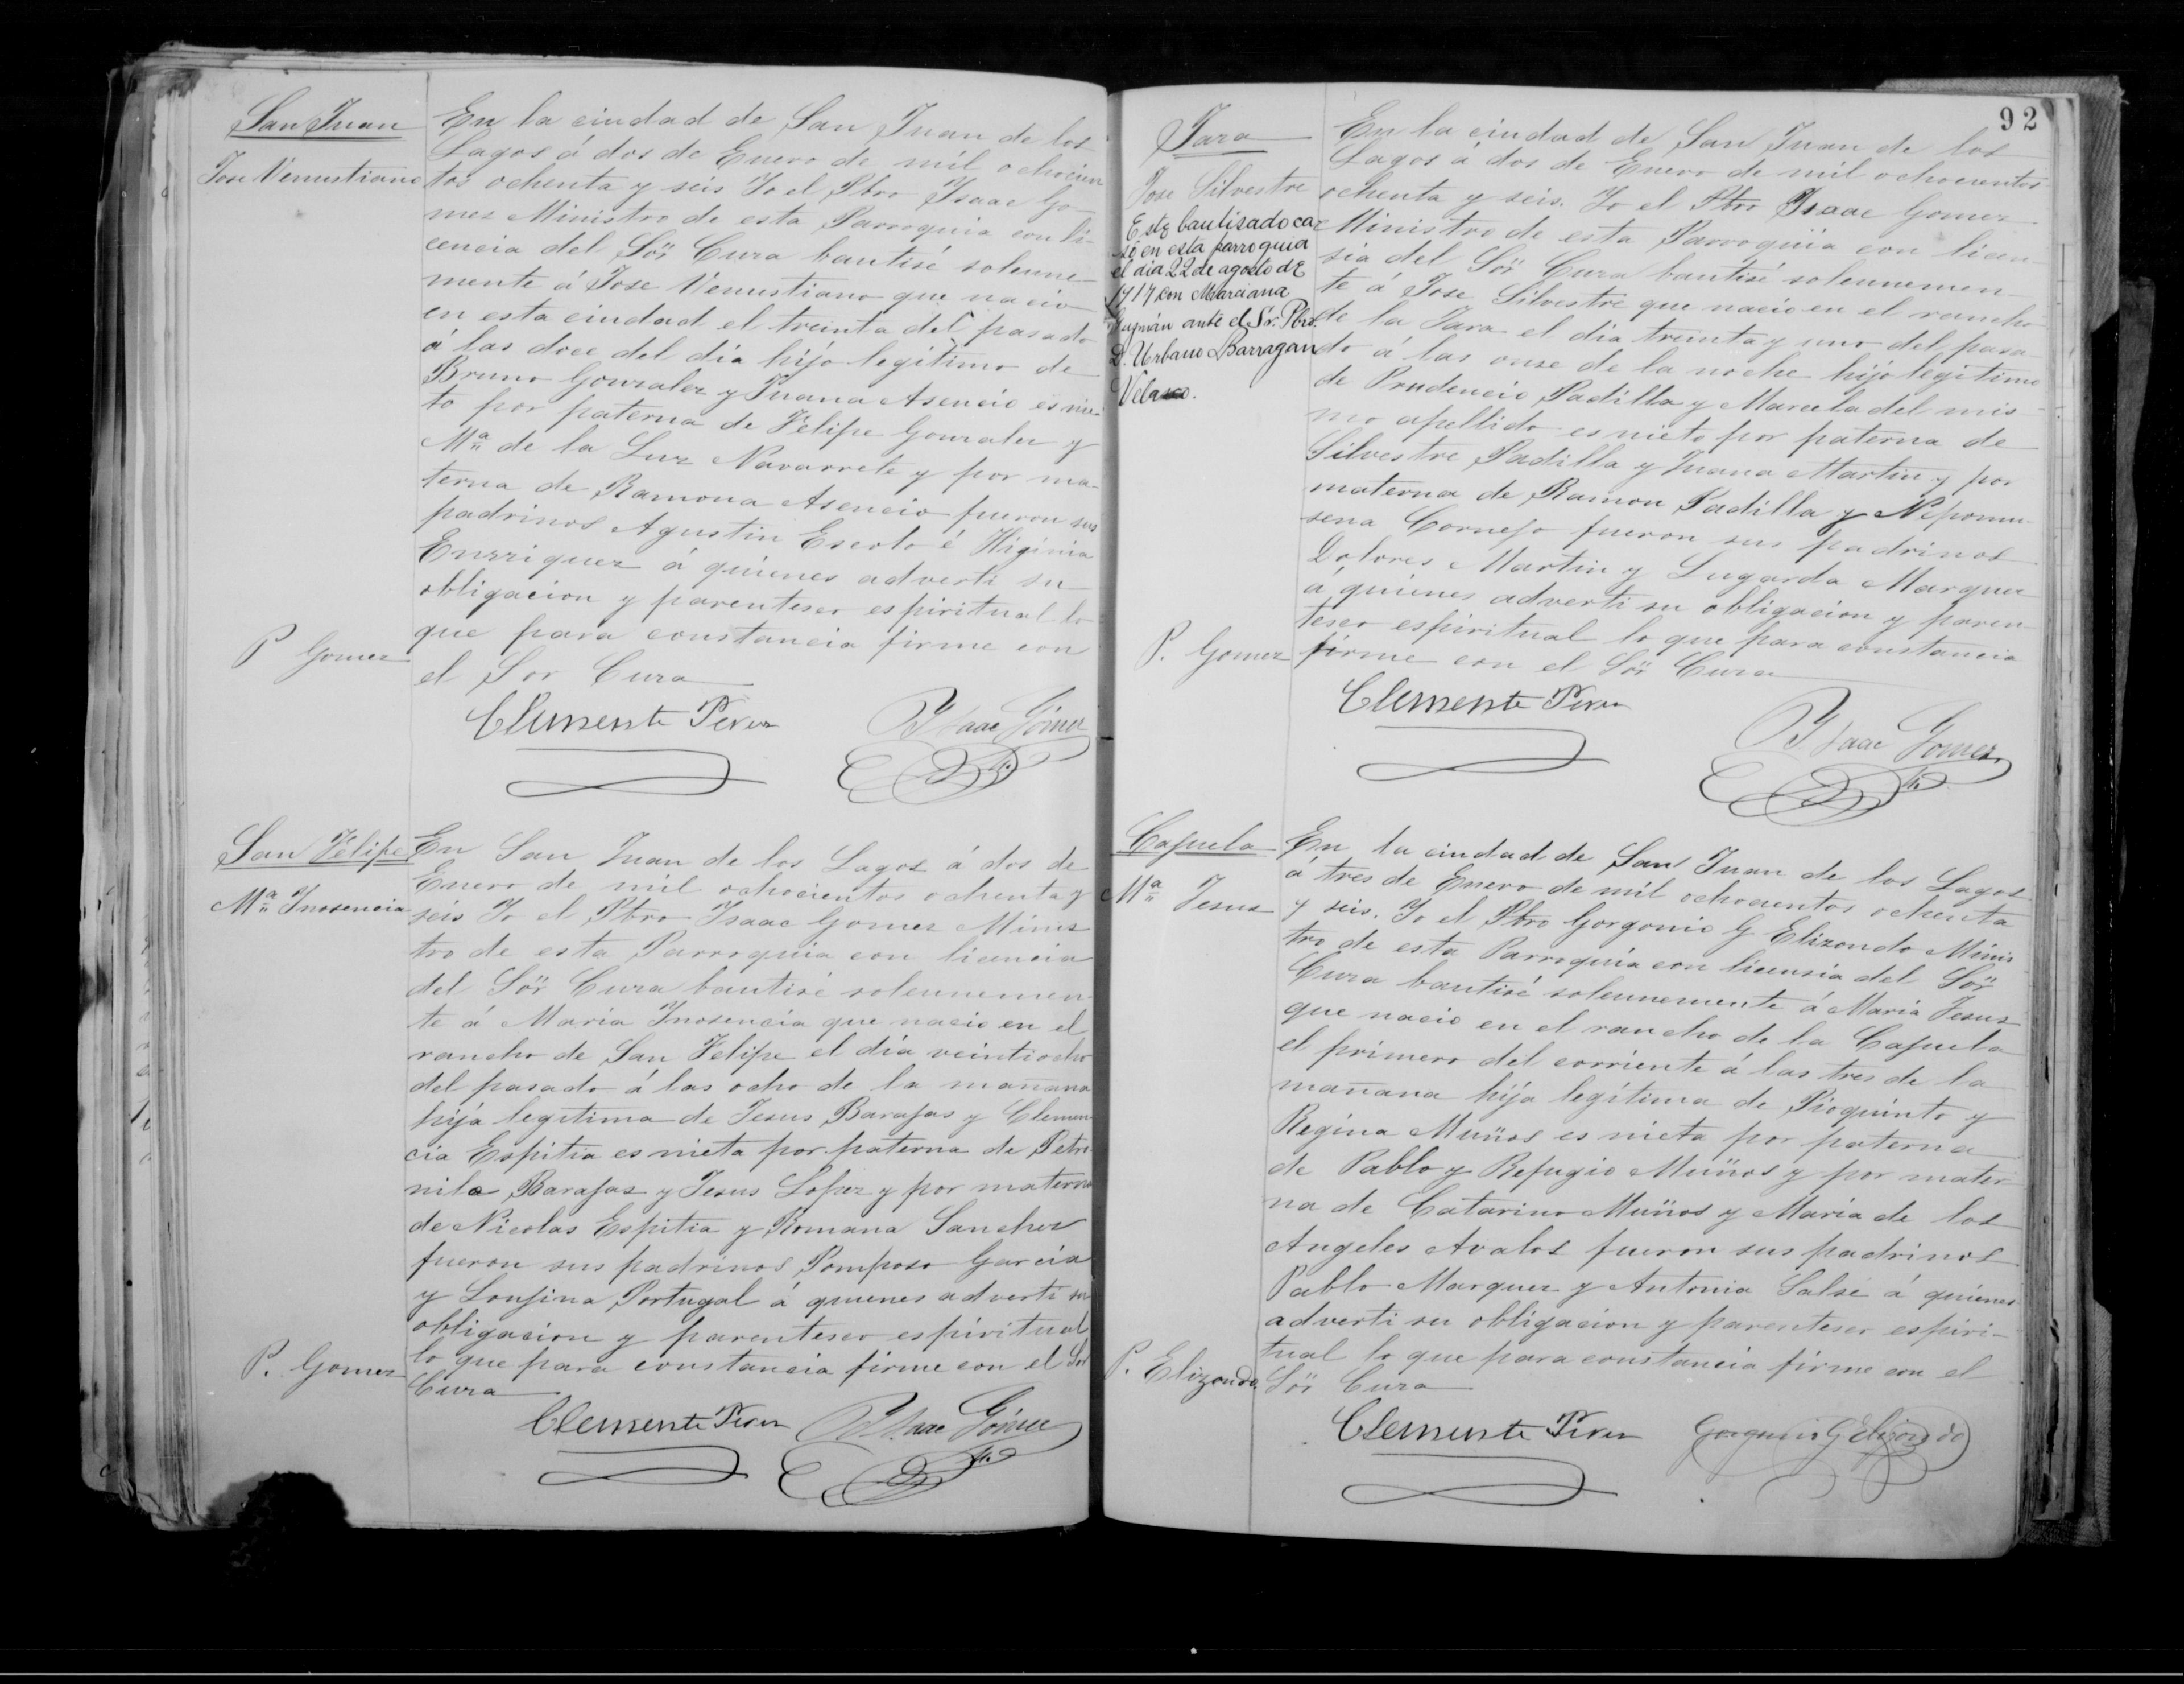 San Juan
Jose Venustiano
En la ciudad de San Juan de los
Lagos á dos de Enero de mil ochocien
tos ochenta y seis Yo el Pbro Isaac Go-
mez Ministro de esta Parroquia con li-
cencia del Sör Cura bautisé solenne-
mente á Jose Venustiano que nacio
en esta ciudad el treinta del pasado
á las doce del dia hijo legitimo de
Bruno Gonzalez y Juana Asencio es nie-
to por paterna de Felipe Gonzalez y
Mª de la Luz Navarrete y por ma-
terna de Ramona Asencio fueron sus
padrinos Agustin Escoto é Higinia
Enrriquez á quienes adverti su
obligacion y parentesco espiritual lo
que para constancia firme con
el Sor Cura
P Gomez
Clemente Perez
Isaac Gómez
San Felipe
Mª Inosencia
En San Juan de los Lagos á dos de
Enero de mil ochocientos ochenta y
seis Yo el Pbro Isaac Gomez Minis
tro de esta Parroquia con licencia
del Sör Cura bautisé solennemen-
te á Maria Inosencia que nacio en el
rancho de San Felipe el dia veintiocho
del pasado á las ocho de la mañana
hija legitima de Jesus Barajas y Clemen-
cia Espitia es nieta por paterna de Petro-
nila Barajas y Jesus Lopez y por materna
de Nicolas Espitia y Romana Sanchez
fueron sus padrinos Pomposo Garcia
y Lonjina Portugal á quienes adverti su
obligacion y parentesco espiritual
lo que para constancia firme con el Sor
Cura
P. Gomez
Clemente Perez
Isaac Gómez
92
Jara
Jose Silvestre
Este bautisado ca-
só en esta parroquia
el dia 22 de agosto de
con Marciana
Guzmán ante el Sr. Pbro.
D. Urbano Barragan
Velasco.
En la ciudad de San Juan de los
Lagos á dos de Enero de mil ochocientos
ochenta y seis. Yo el Pbro Isaac Gomez
Ministro de esta Parroquia con licen-
sia del Sör Cura bautisé solennemen-
te á Jose Silvestre que nacio en el rancho
de la Jara el dia treinta y uno del pasa-
do á las onse de la noche hijo legitimo
de Prudencio Padilla y Marcela del mis-
mo apellido es nieto por paterna de
Silvestre Padilla y Juana Martin y por
materna de Ramon Padilla y Nepomu-
sena Cornejo fueron sus padrinos
Dolores Martin y Lugarda Marquez
á quienes adverti su obligacion y paren-
tesco espiritual lo que para constancia
firme con el Sör Cura
P. Gomez
Clemente Perez
Isaac Gomez
Capuela
Mª Jesus
En la ciudad de San Juan de los Lagos
á tres de Enero de mil ochocientos ochenta
y seis. Yo el Pbro Gorgonio G Elizondo Minis
tro de esta Parroquia con licensia del Sör
Cura bautisé solennemente á Maria Jesus
que nacio en el rancho de la Capuela
el primero del corriente á las tres de la
mañana hija legitima de Pioquinto y
Regina Muños es nieta por paterna
de Pablo y Refugio Muños y por mater-
na de Catarino Muños y Maria de los
Angeles Avalos fueron sus padrinos
Pablo Marquez y Antonia Salsé á quienes
adverti su obligacion y parentesco espiri-
tual lo que para constancia firme con el
Sör Cura
P. Elizondo.
Clemente Perez
Gorgonio G Elizondo